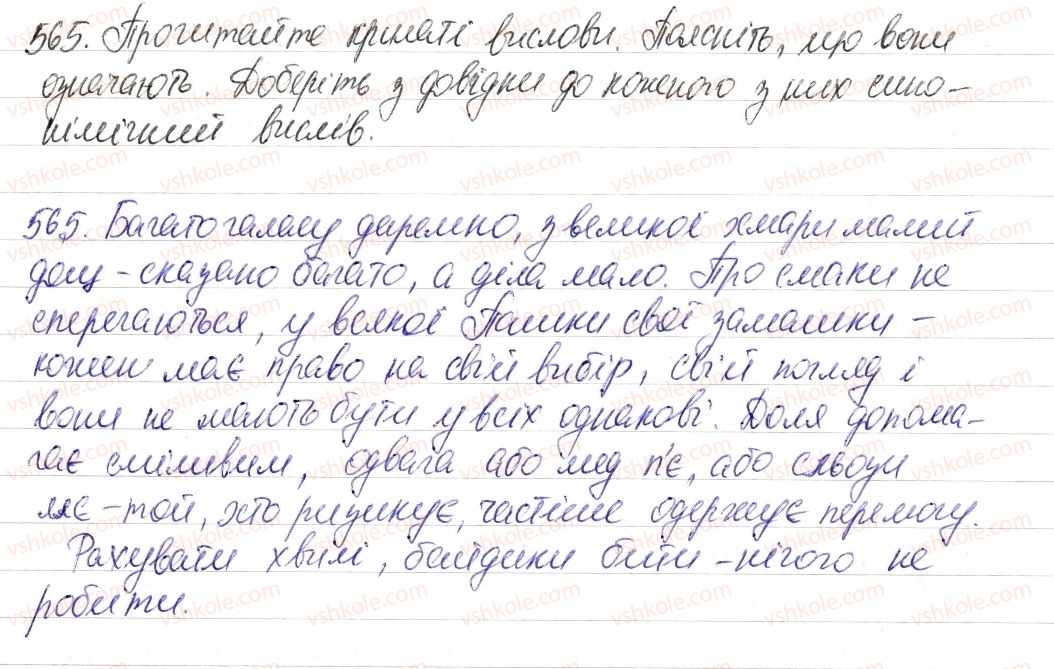 565. Прочитайте крилаті вислови. Поясніть, що вони
означають. Доберіть з довідки до кожного з них сино-
німічний вислів.
565. Багато галасу даремно, з великої хмари малий
дощ - сказано багато, а діла мало. Про смаки не
сперечаються, у всякої Пашки свої замашки -
кожен має право на свій вибір, свій погляд і
вони не мають бути у всіх однакові. Доля допома-
гає сміливим, одвага або мед п'є, або сльози
ллє - той, хто ризикує, частіше одержує перемогу.
Рахувати хвилі, байдики бити - нічого не
робити.